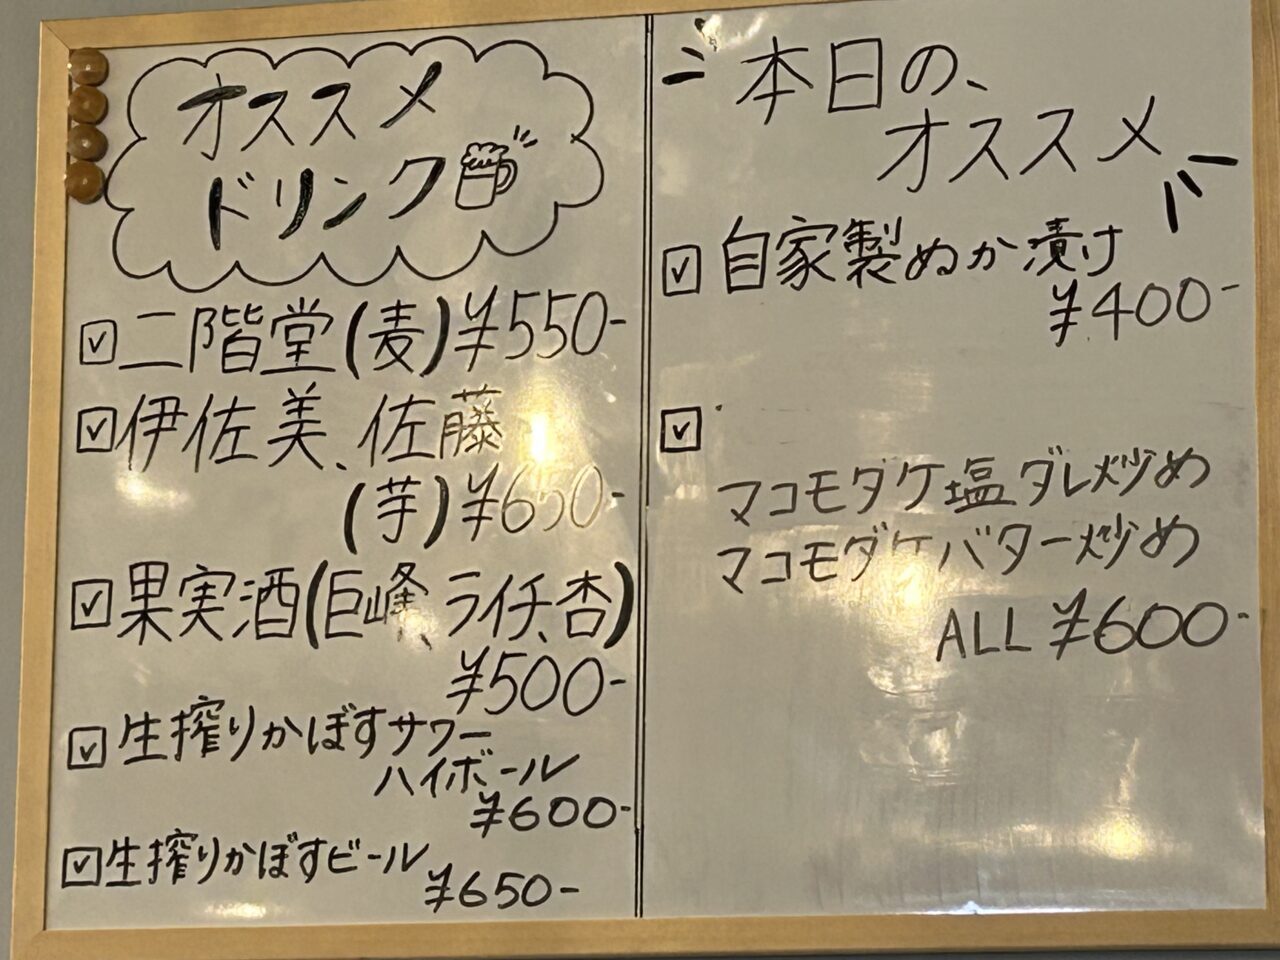 オススメ
ドリンク
二階堂(麦)¥550-
伊佐美、佐藤
(芋)¥650-
果実酒(巨峰、ライチ、杏)
¥500-
生搾りかぼすサワー
ハイボール
¥600-
生搾りかぼすビール
¥650-
本日の、
オススメ
自家製ぬか漬け
¥400-
マコモダケ塩ダレ炒め
マコモダケバター炒め
ALL ¥600-